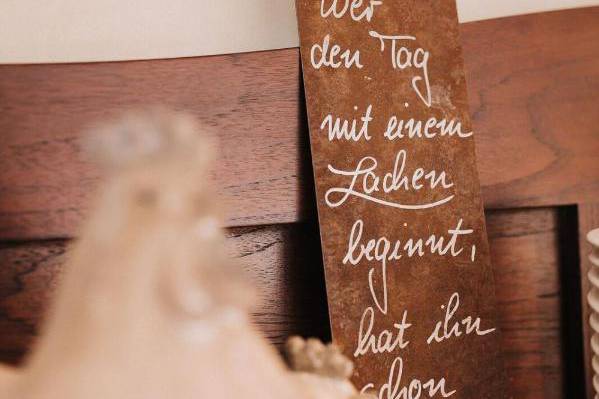 Wer
den Tag
mit einem
Lachen
beginnt,
hat ihn
schon